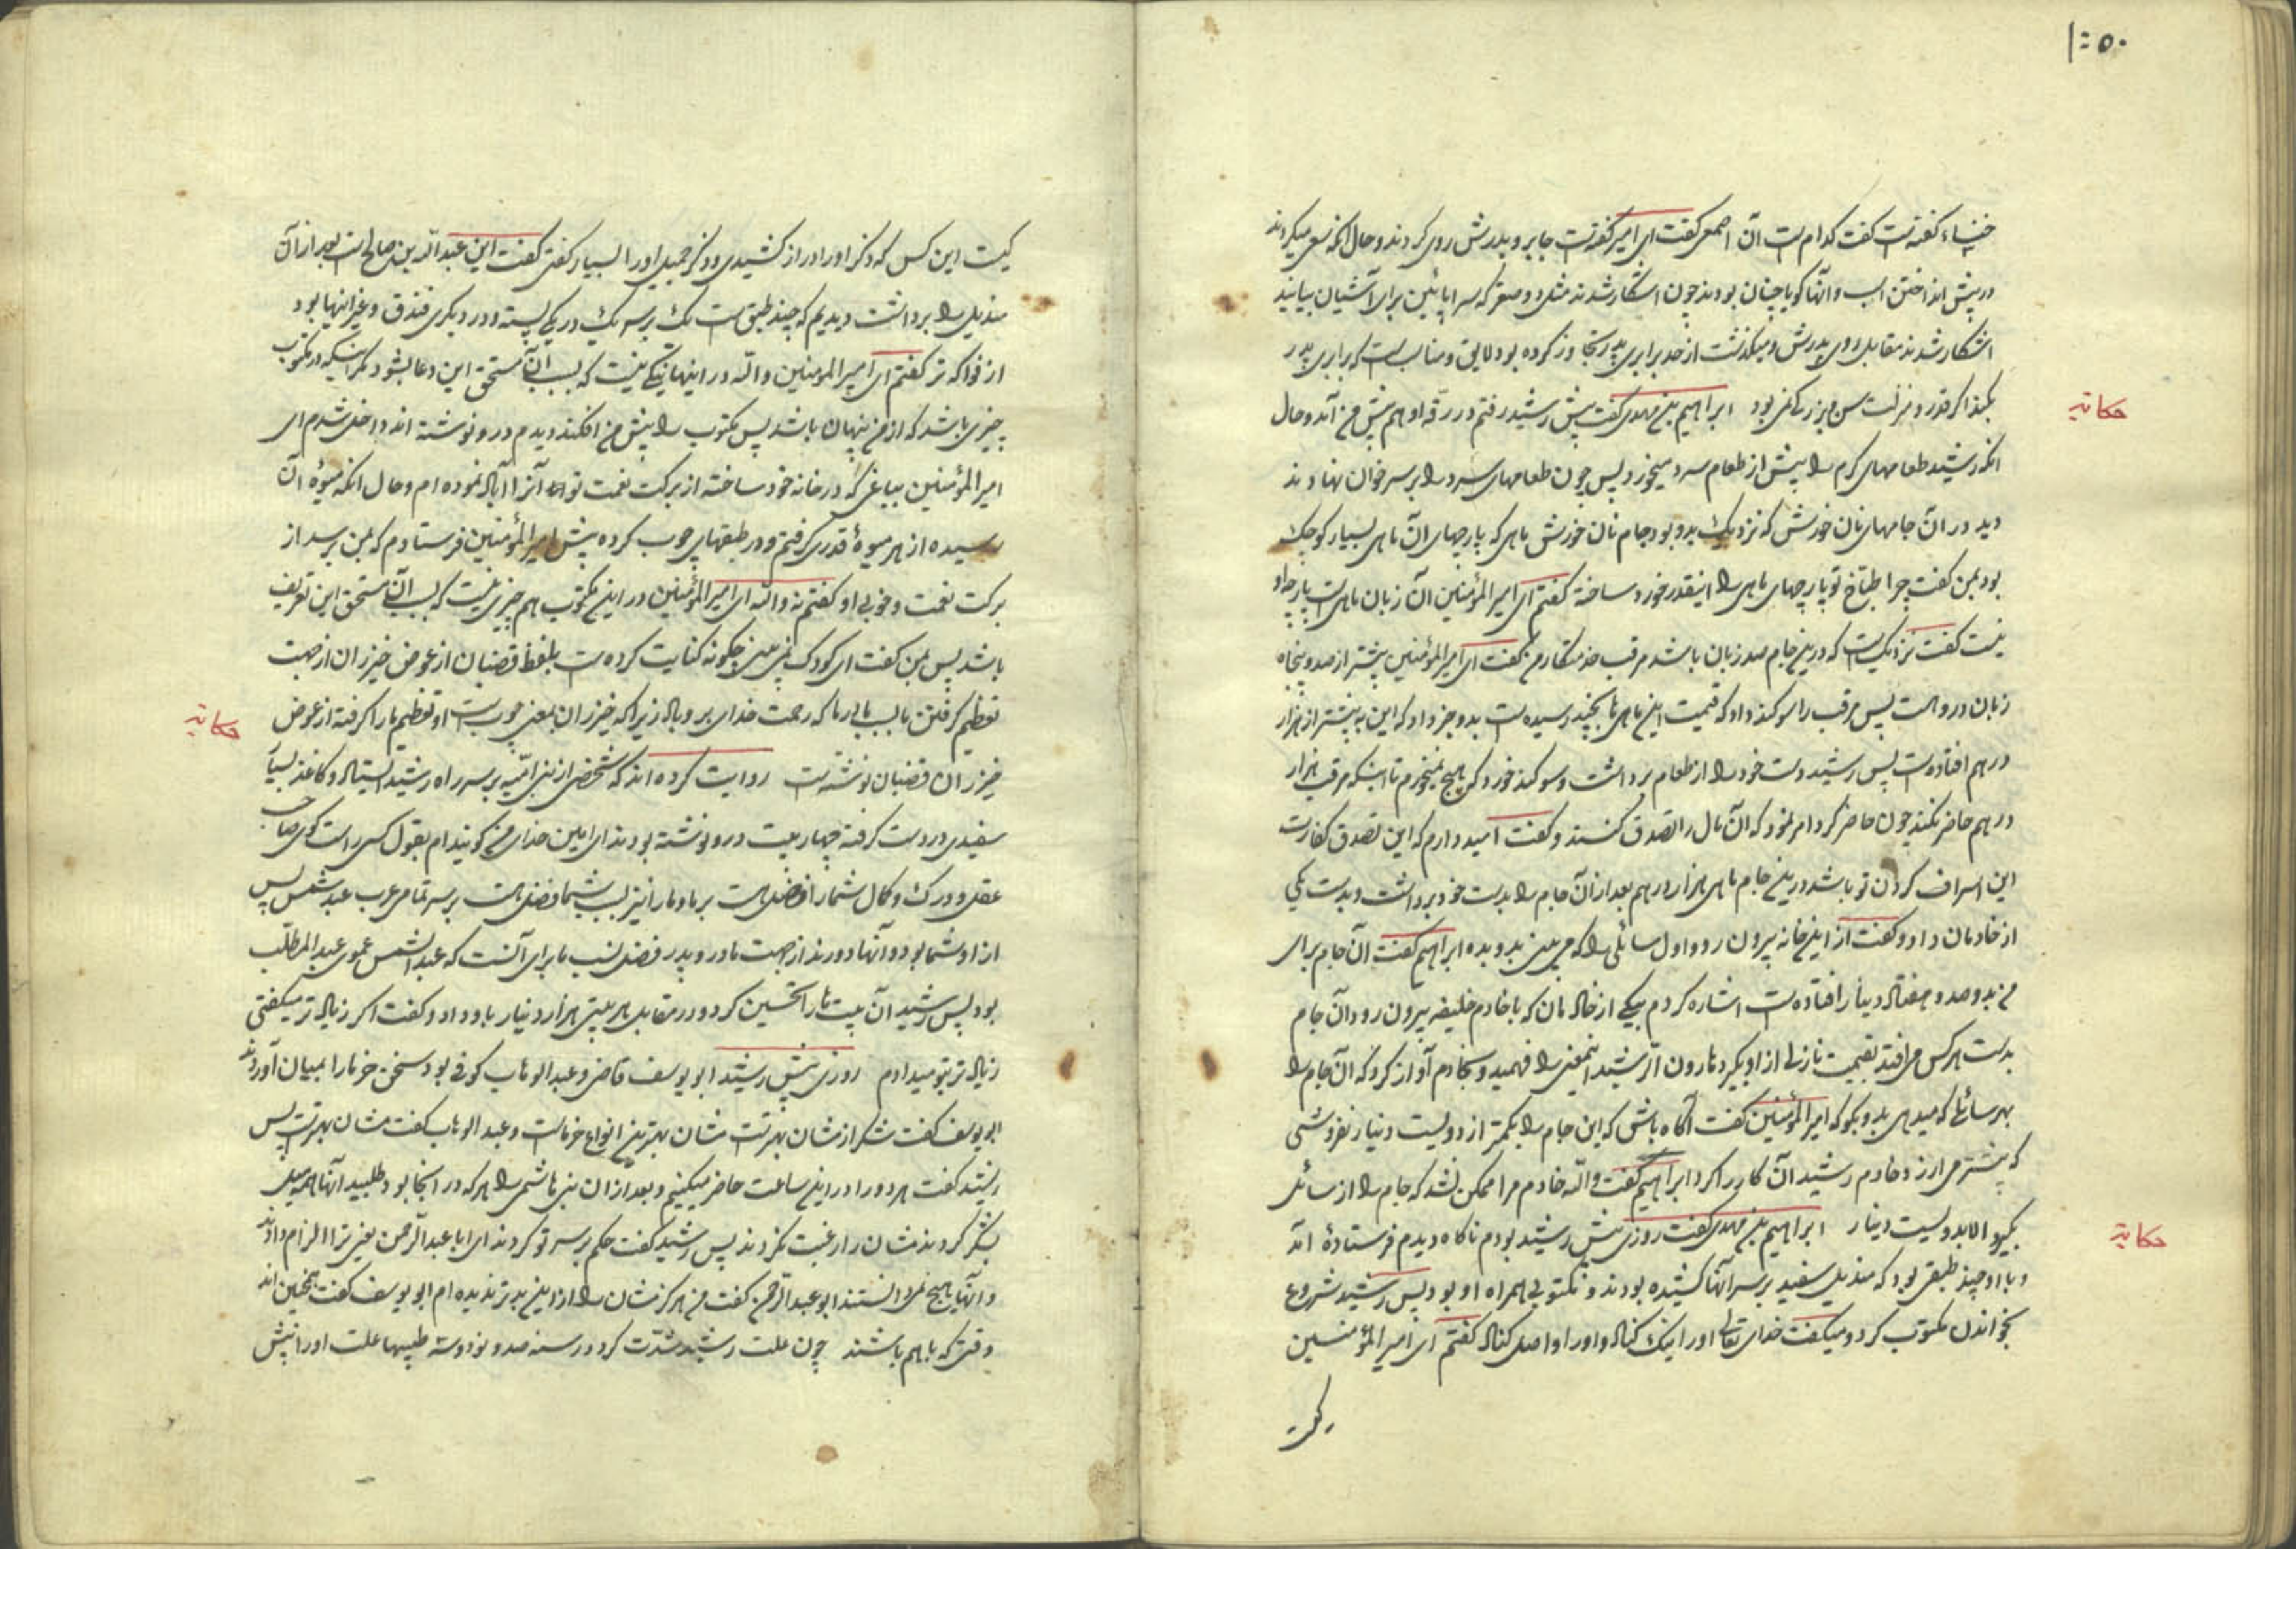 ۱:۵۰
خنساء گفته است گفت کدام است آن اصمعی گفت ای امیر گفته است جابر و پدرش روی کردند و حال آنکه سعی میکردند
در پیش انداختن اسب و آنها گویا چنان بودند چون آشکار شدند مثل دو صقر که سر پایین برای آشیان بیایند
آشکار شدند مقابل روی پدرش و میگذشت از حد برابری پدر تجاوز کرده بود لایق و مناسب است که برابری پدر
بکند اگر قدر و منزلت سن و بزرگی نمی بود ابراهیم بن مهدی گفت پیش رشید رفتم در رقه او هم پیش من آمد و حال
حکایة
آنکه رشید طعامهای گرم را پیش از طعام سرد میخورد پس چون طعامهای سرد را بر سر خوان نهادند
دید در آن جامهای نان خورش که نزدیک بدو بود جام نان خورش ماهی که پارچهای آن ماهی بسیار کوچک
بود بمن گفت چرا طباخ تو پارچهای ماهی را اینقدر خورد ساخته گفتم ای امیر المؤمنین آن زبان ماهی است پارچه او
نیست گفت نزدیک است که درین جام صد زبان باشد مرقب خدمتکار من گفت ای امیر المؤمنین بیشتر از صد و پنجاه
زبان درو است پس مرقب را سوگند داد که قیمت این ماهی تا بچند رسیده است بدو خبر داد که این به بیشتر از هزار
درهم افتاده است پس رشید دست خود را از طعام برداشت و سوگند خورد که هیچ نمیخورم تا اینکه مرقب هزار
درهم حاضر نکند چون حاضر کرد امر نمود که آن مال را تصدق کنند و گفت امید دارم که این تصدق کفارت
این اسراف کردن تو باشد درین جام ماهی هزار درهم بعد از آن جام را بدست خود برداشت و بدست یکی
از خادمان داد و گفت از این خانه بیرون رو و اول سائلی را که می بینی بدو بده ابراهیم گفت آن جام برای
من بدو صد و هفتاد دینار افتاده است اشاره کردم بیکی از خادمان که با خادم خلیفه بیرون رود آن جام
بدست هر کس می افتد بقیمت نازلی از او بگیرد هارون الرشید اینمعنی را فهمید و بخادم آواز کرد که آن جام را
بهر سائلی که میدهی بدو بگو که امیر المؤمنین گفت آگاه باش که این جام را بکمتر از دویست دینار نفروشی
که بیشتر می ارزد خادم رشید آن کار را کرد ابراهیم گفت والله خادم مرا ممکن نشد که جام را از سائل
بگیرد الا بدویست دینار ابراهیم بن مهدی گفت روزی پیش رشید بودم ناگاه دیدم فرستادهٔ آمد
حکایة
و با او چند طبقی بود که مندیل سفید بر سر آنها کشیده بودند و مکتوبی همراه او بود پس رشید شروع
بخواندن مکتوب کرد و میگفت خدای تعالی او را نیک کناد و او را واصل کناد گفتم ای امیر المؤمنین
کیست
کیست این کس که ذکر او را دراز کشیدی و ذکر جمیل او را بسیار گفتی گفت این عبد الله بن صالح است بعد از آن
مندیل را برداشت دیدیم که چند طبق است یک بر سر یک در یکی پسته و در دیگری فندق و غیر اینها بود
از فواکه تر گفتم ای امیر المؤمنین والله در اینها نیکی نیست که بسبب آن مستحق این دعا بشود مگر اینکه در مکتوب
چیزی باشد که از من پنهان باشد پس مکتوب را پیش من افکند دیدم درو نوشته اند داخل شدم ای
امیر المؤمنین بباغی که در خانه خود ساخته از برکت نعمت تو آنرا آباد نموده ام و حال آنکه میوهٔ آن
رسیده از هر میوهٔ قدری گرفتم و در طبقهای چوب کرده پیش امیر المؤمنین فرستادم که بمن برسد از
برکت نعمت و خوبی او گفتم نه والله ای امیر المؤمنین در این مکتوب هم چیزی نیست که بسبب آن مستحق این تعریف
باشد پس بمن گفت ای کودک نمی بینی چگونه کنایت کرده است بلفظ قضبان از عوض خیزران از جهت
تعظیم گرفتن ما بسبب مادر ما که رحمت خدای برو باد زیرا که خیزران بمعنی چوب است او تعظیم ما را گرفته از عوض
حکایة
خیزران قضبان نوشته است روایت کرده اند که شخصی از بنی امیه بر سر راه رشید ایستاد و کاغذ بسیار
سفیدی در دست گرفته چهار بیت درو نوشته بودند ای امین خدای من گوینده ام بقول کسی راست گوی صاحب
عقل و درک و کمال شما را فضل است بر ما و ما را نیز بسبب شما فضل است بر سر تمامی عرب عبد شمس پس
از او شما بود و آنها دورند از جهت مادر و پدر فضل نسب ما برای آنست که عبد الشمس عموی عبد المطلب
بود پس رشید آن بیت ها را تحسین کرد و در مقابل هر بیتی هزار دینار باو داد و گفت اگر زیاد تر میگفتی
زیاد تر بتو میدادم روزی پیش رشید ابو یوسف قاضی و عبد الوهاب کوفی بود سخن خرما را بمیان آوردند
ابو یوسف گفت شکر از مشان بهتر است مشان بهترین انواع خرماست و عبد الوهاب گفت مشان بهتر است پس
رشید گفت هر دو را در این ساعت حاضر میکنیم و بعد از آن بنی هاشمی را هر که در آنجا بود طلبید آنها همه میل
بشکر کردند مشان را رغبت نکردند پس رشید گفت حکم بر سر تو کردند ای ابا عبد الرحمن یعنی ترا الزام دادند
و آنها هیچ نمی دانستند ابو عبد الرحمن گفت من هرگز مشان را از این بدتر ندیده ام ابو یوسف گفت همچنین اند
وقتی که با هم باشند چون علت رشید شدت کرد در سنه صد و نود و سه طبیبها علت او را پیش